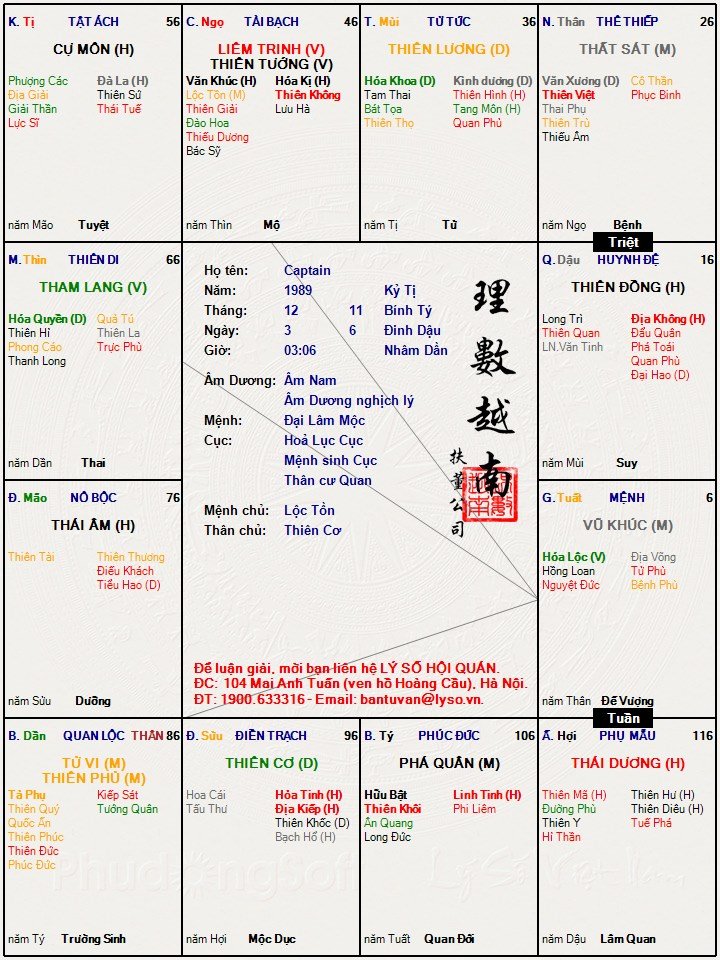 K. Tị TẬT ÁCH 56
CỰ MÔN (H)
Phượng Các Đà La (H)
Địa Giải Thiên Sứ
Giải Thần Thái Tuế
Lực Sĩ
năm Mão Tuyệt
C. Ngọ TÀI BẠCH 46
LIÊM TRINH (V)
THIÊN TƯỚNG (V)
Văn Khúc (H) Hóa Kị (H)
Lộc Tồn (M) Thiên Không
Thiên Giải Lưu Hà
Đào Hoa
Thiếu Dương
Bác Sỹ
năm Thìn Mộ
T. Mùi TỬ TỨC 36
THIÊN LƯƠNG (D)
Hóa Khoa (D) Kình dương (D)
Tam Thai Thiên Hình (H)
Bát Tọa Tang Môn (H)
Thiên Thọ Quan Phủ
năm Tị Tử
N. Thân THÊ THIẾP 26
THẤT SÁT (M)
Văn Xương (D) Cô Thần
Thiên Việt Phục Binh
Thai Phụ
Thiên Trù
Thiếu Âm
năm Ngọ Bệnh
Triệt
M. Thìn THIÊN DI 66
THAM LANG (V)
Hóa Quyền (D) Quả Tú
Thiên Hỉ Thiên La
Phong Cáo Trực Phù
Thanh Long
năm Dần Thai
Họ tên: Captain
Năm: 1989 Kỷ Tị
Tháng: 12 11 Bính Tý
Ngày: 3 6 Đinh Dậu
Giờ: 03:06 Nhâm Dần
Âm Dương: Âm Nam
Âm Dương nghịch lý
Mệnh: Đại Lâm Mộc
Cục: Hoả Lục Cục
Mệnh sinh Cục
Thân cư Quan
Mệnh chủ: Lộc Tồn
Thân chủ: Thiên Cơ
理數越南
扶董公司
Để luận giải, mời bạn liên hệ LÝ SỐ HỘI QUÁN.
ĐC: 104 Mai Anh Tuấn (ven hồ Hoàng Cầu), Hà Nội.
ĐT: 1900.633316 - Email: bantuvan@lyso.vn.
Q. Dậu HUYNH ĐỆ 16
THIÊN ĐỒNG (H)
Long Trì Địa Không (H)
Thiên Quan Đẩu Quân
LN.Văn Tinh Phá Toái
Quan Phù
Đại Hao (D)
năm Mùi Suy
Đ. Mão NÔ BỘC 76
THÁI ÂM (H)
Thiên Tài Thiên Thương
Điếu Khách
Tiểu Hao (D)
năm Sửu Dưỡng
G. Tuất MỆNH 6
VŨ KHÚC (M)
Hóa Lộc (V) Địa Võng
Hồng Loan Tử Phù
Nguyệt Đức Bệnh Phù
năm Thân Đế Vượng
Tuần
B. Dần QUAN LỘC THÂN 86
TỬ VI (M)
THIÊN PHỦ (M)
Tả Phụ Kiếp Sát
Thiên Quý Tướng Quân
Quốc Ấn
Thiên Phúc
Thiên Đức
Phúc Đức
năm Tý Trường Sinh
Đ. Sửu ĐIỀN TRẠCH 96
THIÊN CƠ (D)
Hoa Cái Hỏa Tinh (H)
Tấu Thư Địa Kiếp (H)
Thiên Khốc (D)
Bạch Hổ (H)
năm Hợi Mộc Dục
B. Tý PHÚC ĐỨC 106
PHÁ QUÂN (M)
Hữu Bật Linh Tinh (H)
Thiên Khôi Phi Liêm
Ân Quang
Long Đức
năm Tuất Quan Đới
Ấ. Hợi PHỤ MẪU 116
THÁI DƯƠNG (H)
Thiên Mã (H) Thiên Hư (H)
Đường Phù Thiên Diêu (H)
Thiên Y Tuế Phá
Hỉ Thần
năm Dậu Lâm Quan
PhudongSoft
Lý Số Việt Nam